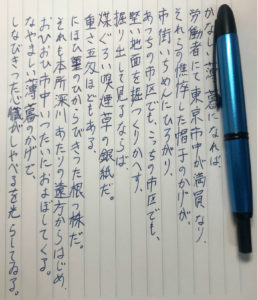 かなしい薄暮になれば、
労働者にて東京市中が満員なり、
それらの憔悴した帽子のかげが、
市街いちめんにひろがり、
あっちの市区でも、こっちの市区でも、
堅い地面を掘っくりかへす、
掘り出して見るならば、
煤ぐろい嗅煙草の銀紙だ。
重さ五匁ほどもある、
にほひ菫のひからびきった根っ株だ。
それも本所深川あたりの遠方からはじめ、
おひおひ市中いったいにおよぼしてくる。
なやましい薄暮のかげで、
しなびきった心臓がしゃべるを光らしてゐる。